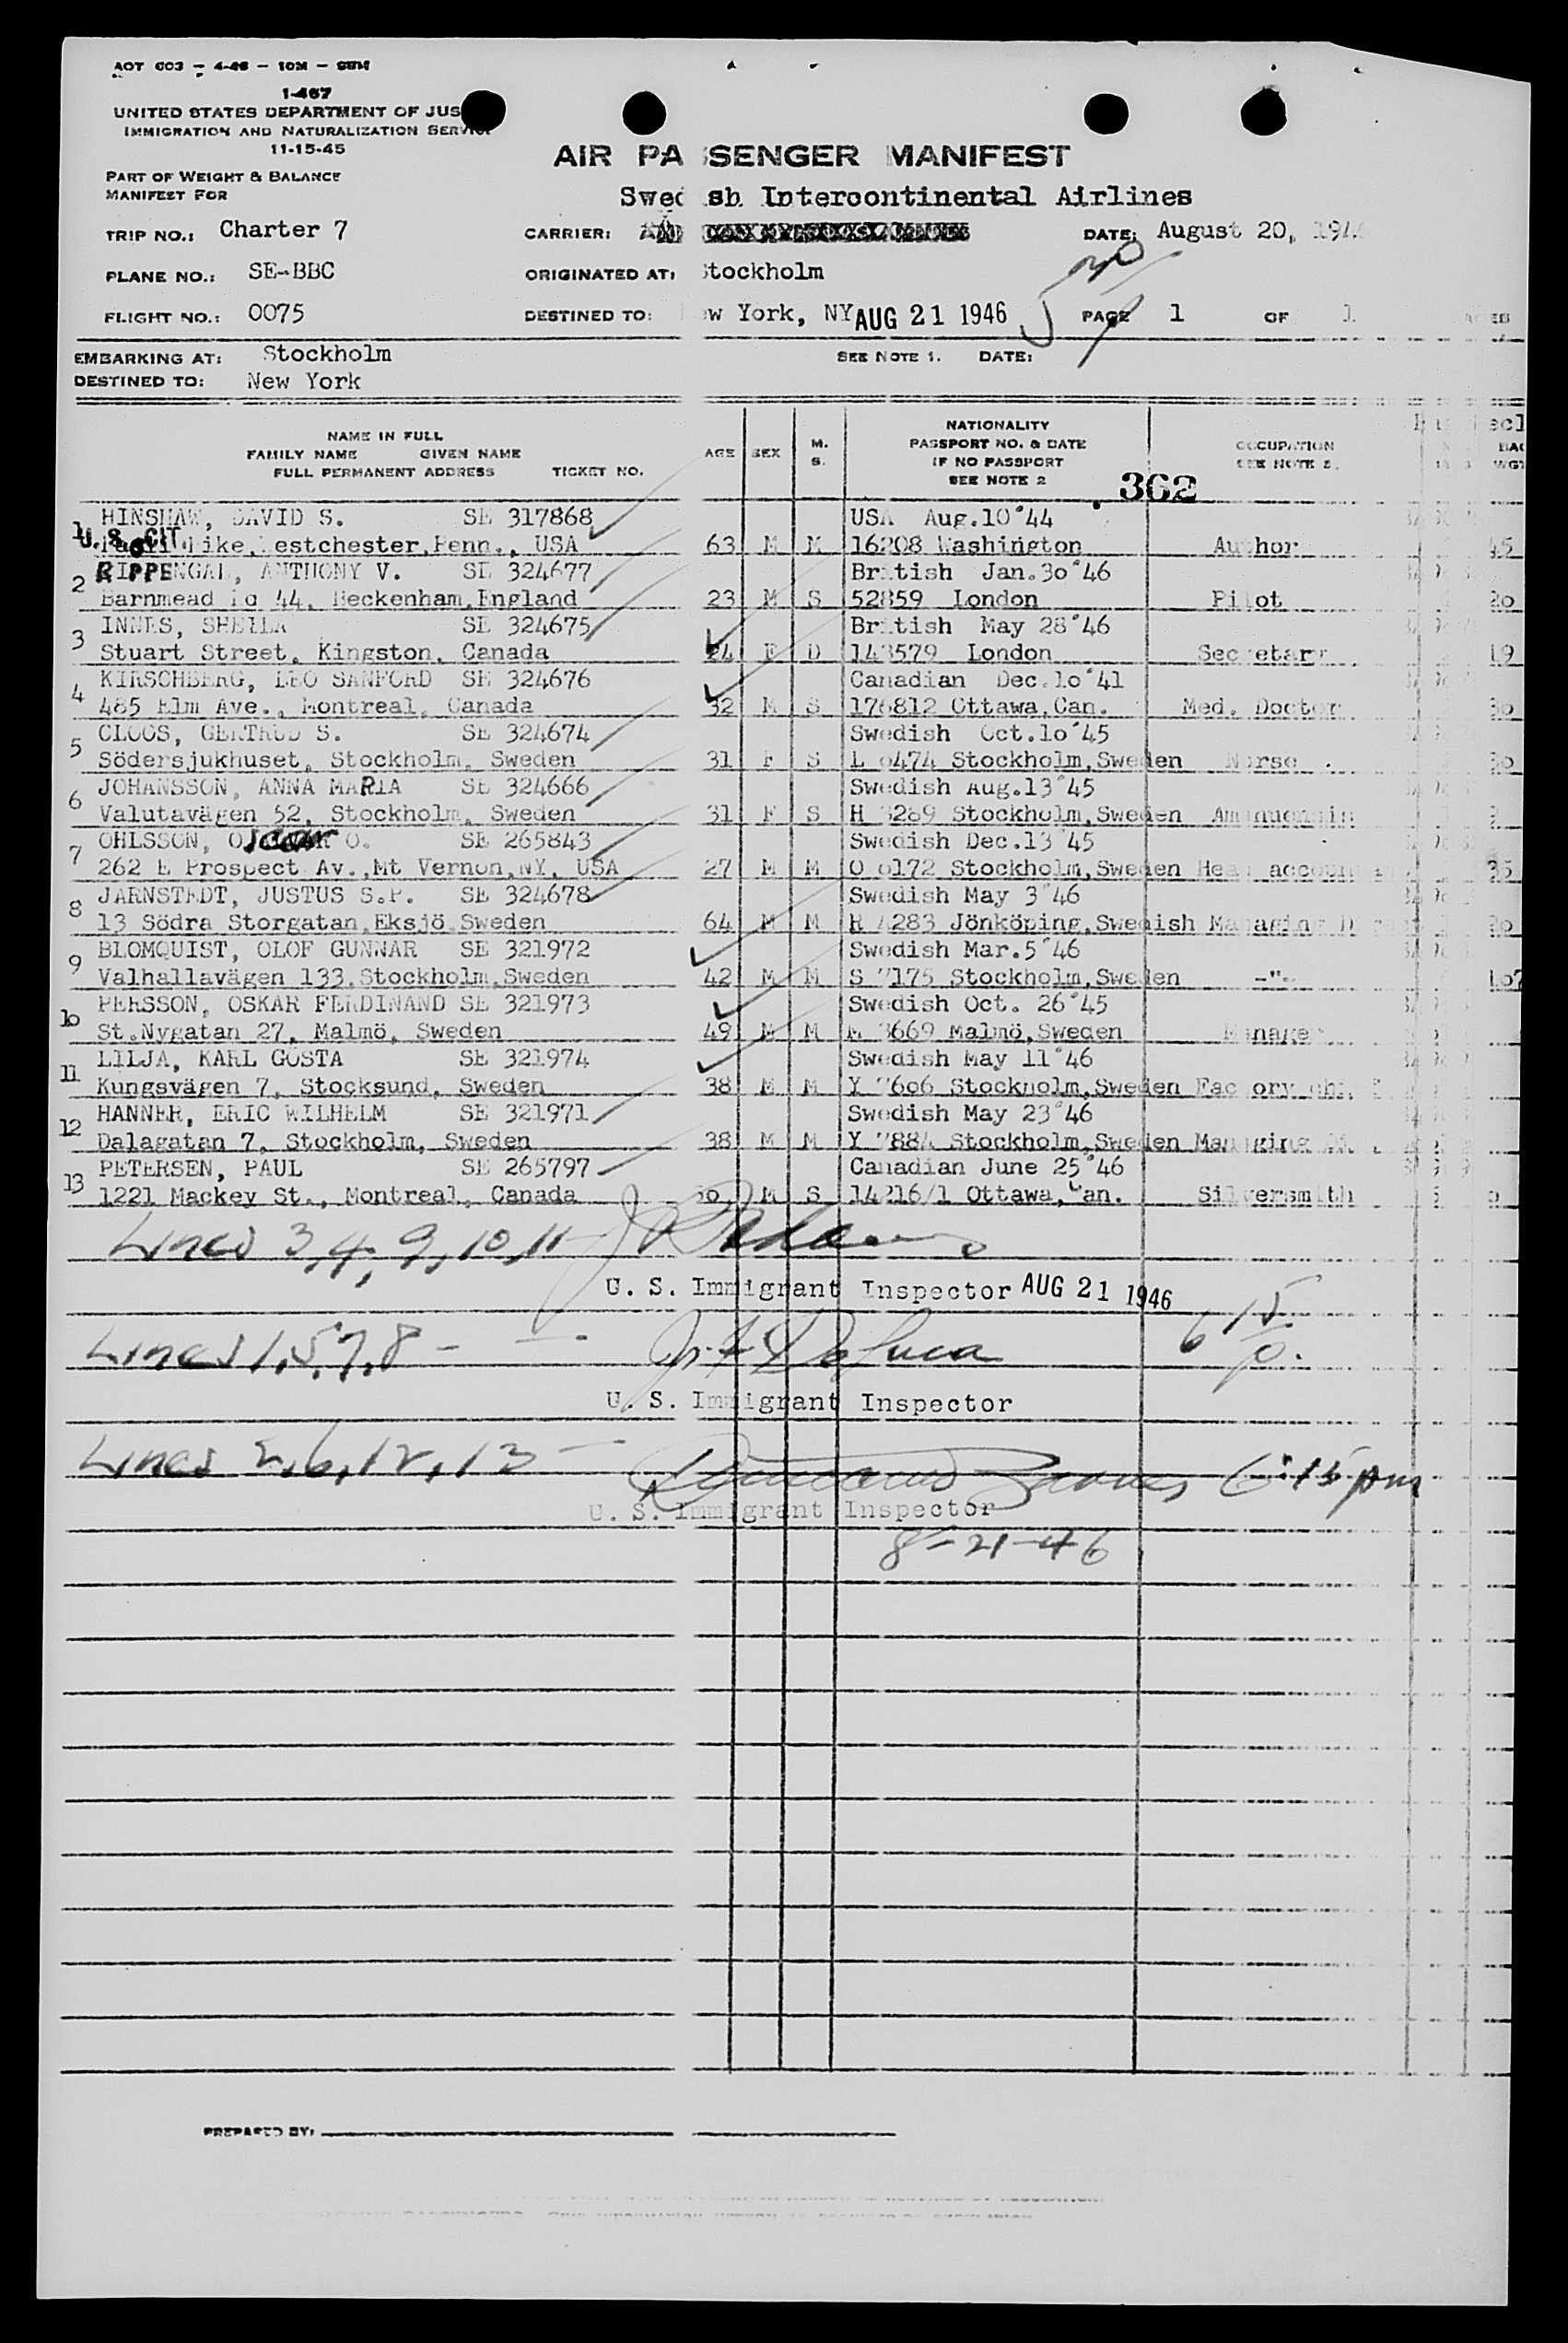 1-467
UNITED STATES DEPARTMENT OF JUS
IMMIGRATION AND NATURALIZATION SERVICE
11-15-45
AIR PASSENGER MANIFEST
PART OF WEIGHT & BALANCE
MANIFEST FOR
Swedish Intercontinental Airlines
TRIP NO.: Charter 7
CARRIER:
DATE: August 20, 194
PLANE NO.: SE-BBC
ORIGINATED AT: Stockholm
FLIGHT NO.: 0075
DESTINED TO: New York, NY AUG 21 1946
PAGE 1 OF 1
EMBARKING AT: Stockholm
SEE NOTE 1. DATE:
DESTINED TO: New York
NAME IN FULL
FAMILY NAME GIVEN NAME
FULL PERMANENT ADDRESS TICKET NO.
AGE SEX M. S.
NATIONALITY
PASSPORT NO. & DATE
IF NO PASSPORT
SEE NOTE 2
OCCUPATION
SEE NOTE 2.
362
1 HINSHAW, DAVID S. SE 317868 USA Aug.10"44
U.S. CIT. Pike, Westchester,Penn., USA 63 M M 16208 Washington Author 45
2 RIPPENGAL, ANTHONY V. SE 324677 British Jan.3o"46
Barnmead 44, Beckenham,England 23 M S 52859 London Pilot 2o
3 INNES, SHEILA SE 324675 British May 28"46
Stuart Street, Kingston, Canada 24 F D 143579 London Secretary 19
4 KIRSCHBERG, LEO SANFORD SE 324676 Canadian Dec.1o"41
485 Elm Ave., Montreal, Canada 32 M S 176812 Ottawa,Can. Med. Doctor 3o
5 CLOOS, GERTRUD S. SE 324674 Swedish Oct.1o"45
Södersjukhuset, Stockholm, Sweden 31 F S L o474 Stockholm,Sweden Nurse 3o
6 JOHANSSON, ANNA MARIA SE 324666 Swedish Aug.13"45
Valutavägen 52, Stockholm, Sweden 31 F S H 3289 Stockholm,Sweden Amanuensis
7 OHLSSON, Oscar O. SE 265843 Swedish Dec.13"45
262 E Prospect Av.,Mt Vernon,NY, USA 27 M M O o172 Stockholm,Sweden Head 35
8 JARNSTEDT, JUSTUS S.P. SE 324678 Swedish May 3"46
13 Södra Storgatan,Eksjö,Sweden 64 M M R 4283 Jönköping,Swedish Managing 2o
9 BLOMQUIST, OLOF GUNNAR SE 321972 Swedish Mar.5"46
Valhallavägen 133,Stockholm,Sweden 42 M M S 7175 Stockholm,Sweden -"- 1o7
1o PERSSON, OSKAR FERDINAND SE 321973 Swedish Oct. 26"45
St.Nygatan 27, Malmö, Sweden 49 M M M 3669 Malmö,Sweden Manager
11 LILJA, KARL GÖSTA SE 321974 Swedish May 11"46
Kungsvägen 7, Stocksund, Sweden 38 M M Y 76o6 Stockholm,Sweden Factory
12 HANNER, ERIC WILHELM SE 321971 Swedish May 23"46
Dalagatan 7, Stockholm, Sweden 38 M M Y 7884 Stockholm,Sweden Managing
13 PETERSEN, PAUL SE 265797 Canadian June 25"46
1221 Mackey St., Montreal, Canada M S 14216/1 Ottawa,Can. Silversmith
Lines 3,4,9,10,11
U. S. Immigrant Inspector AUG 21 1946
Lines 1,5,7,8 -
U. S. Immigrant Inspector
Lines 2,6,12,13 - 6:15 pm
U. S. Immigrant Inspector
8-21-46
PREPARED BY: